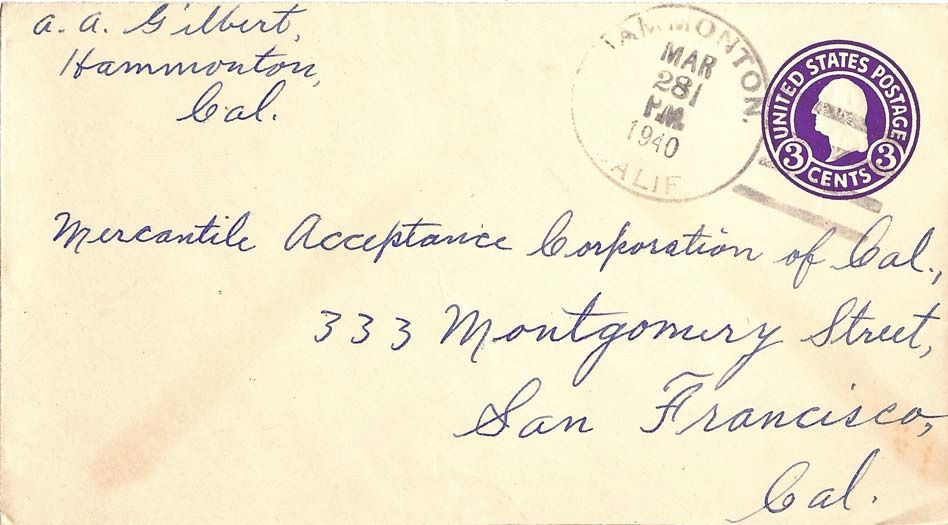 A. A. Gilbert,
Hammonton,
Cal.
HAMMONTON.
MAR
28
1
P.M.
1940
CALIF
UNITED STATES POSTAGE
3 CENTS 3
Mercantile Acceptance Corporation of Cal.,
333 Montgomery Street,
San Francisco,
Cal.